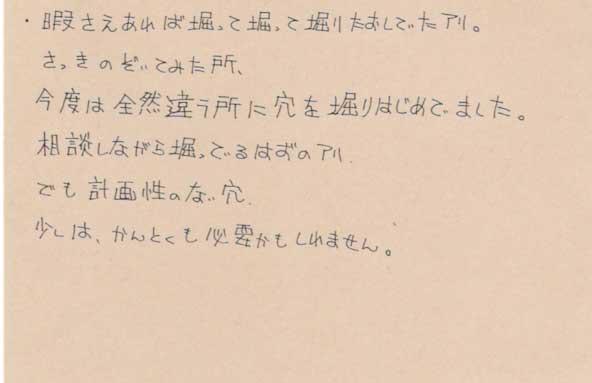 ・暇さえあれば堀って堀って堀りたおしていたアリ。
さっきのぞいてみた所、
今度は全然違う所に穴を堀りはじめてました。
相談しながら堀っているはずのアリ.
でも計画性のない穴.
少しは、かんとくも必要かもしれません。